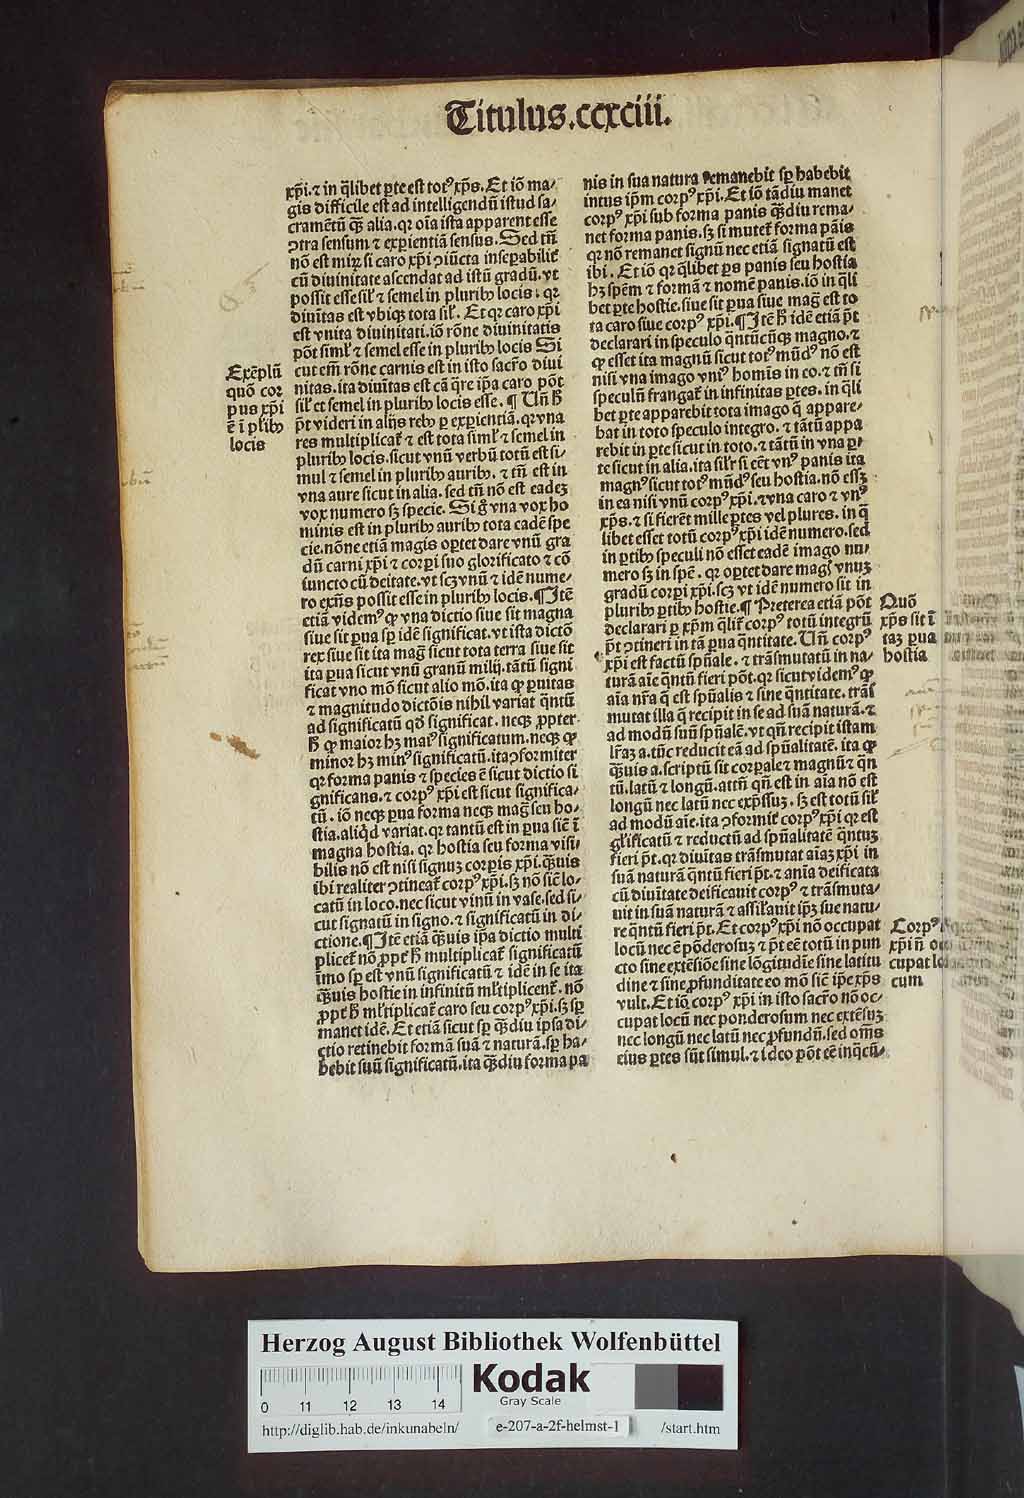 Titulus.ccxciii.
xp̄i.⁊ in q̄libet ꝑte est totꝰ xp̄s. Et iō ma⸗
gis difficile est ad intelligendū istud sa⸗
cramētū q̄ꝫ alia. qꝛ oīa ista apparent esse
ↄtra sensum ⁊ exꝑientiā sensus. Sed tn̄
nō est miꝝ si caro xp̄i ↄiūcta insepabilit̄
cū diuinitate ascendat ad istū gradū. vt
possit esse sil̄ ⁊ semel in pluribꝰ locis: qꝛ
diuītas est vbiqꝫ tota sil̄. Et qꝛ caro xp̄i
est vnita diuinitati. iō rōne diuinitatis
pōt siml̄ ⁊ semel esse in pluribꝰ locis Si
cut em̄ rōne carnis est in isto sacr̄o diui
nitas. ita diuītas est cā q̄re ip̄a caro pōt
sil̄ et semel in pluribꝰ locis esse. ¶ Un̄ h̄
p̄t videri in alijs rebꝰ ꝑ exꝑientiā. qꝛ vna
res multiplicat̄ ⁊ est tota siml̄ ⁊ semel in
pluribꝰ locis. sicut vnū verbū totū est si⸗
mul ⁊ semel in pluribꝰ auribꝰ. ⁊ tn̄ est in
vna aure sicut in alia. sed tn̄ nō est eadeꝫ
vox numero sꝫ specie. Si g̊ vna vox ho
minis est in pluribꝰ auribꝰ tota eadē spe
cie. nōne etiā magis oꝑtet dare vnū gra
dū carni xp̄i ⁊ corꝑi suo glorificato ⁊ cō
iuncto cū deitate. vt scꝫ vnū ⁊ idē nume⸗
ro exn̄s possit esse in pluribꝰ locis. ¶ Itē
etiā videmꝰ ꝙ vna dictio siue sit magna
siue sit ꝑua sꝑ idē significat. vt ista dictō
rex siue sit ita maḡ sicut tota terra siue sit
ita ꝑua sicut vnū granū milij. tātū signi
ficat vno mō sicut alio mō. ita ꝙ ꝑuitas
⁊ magnitudo dictōis nihil variat q̄ntū
ad significatū qd̄ significat. neqꝫ ꝓpter
h̄ ꝙ maior hꝫ maiꝰ significatum. neqꝫ ꝙ
minor hꝫ minꝰ significatū. ita ↄformiter
qꝛ forma panis ⁊ species ē sicut dictio si
gnificans. ⁊ corpꝰ xp̄i est sicut significa⸗
tū. iō neqꝫ ꝑua forma neqꝫ maḡ seu ho⸗
stia. aliq̄d variat. qꝛ tantū est in ꝑua sic̄ ī
magna hostia. qꝛ hostia seu forma visi⸗
bilis nō est nisi signuꝫ corꝑis xp̄i. q̄ꝫuis
ibi realiter ↄtineat̄ corpꝰ xp̄i. sꝫ nō sic̄ lo⸗
catū in loco. nec sicut vinū in vase. sed si⸗
cut signatū in signo. ⁊ significatū in di⸗
ctione. ¶ Itē etiā q̄ꝫuis ip̄a dictio multi
plicet̄ nō ꝓpt̄ h̄ multiplicat̄ significatū
īmo sꝑ est vnū significatū ⁊ idē in se ita
q̄ꝫuis hostie in infinitū ml̄tiplicent̄. nō
ꝓpt̄ h̄ ml̄tiplicat̄ caro seu corpꝰ xp̄i. sꝫ sꝑ
manet idē. Et etiā sicut sꝑ q̄ꝫdiu ipsa di⸗
ctio retinebit formā suā ⁊ naturā. sꝑ ha⸗
bebit suū significatū. ita q̄ꝫdiu forma pa
Exēplū
quō cor
pus xp̄i
ē ī pl̄ibꝰ
locis
nis in sua natura remanebit sꝑ habebit
intus ip̄m corpꝰ xp̄i. Et iō tādiu manet
corpꝰ xp̄i sub forma panis q̄ꝫdiu rema⸗
net forma panis. sꝫ si mutet̄ forma pāis
qꝛ nō remanet signū nec etiā signatū est
ibi. Et iō qꝛ q̄libet ꝑs panis seu hostia
hꝫ spēm ⁊ formā ⁊ nomē panis. iō in q̄li
bet ꝑte hostie. siue sit ꝑua siue maḡ est to
ta caro siue corpꝰ xp̄i. ¶ Itē h̄ idē etiā p̄t
declarari in speculo q̄ntūcūqꝫ magno. ⁊
ꝙ esset ita magnū sicut totꝰ mūdꝰ nō est
nisi vna imago vniꝰ homīs in eo. ⁊ tn̄ si
speculū frangat̄ in infinitas ꝑtes. in q̄li
bet ꝑte apparebit tota imago q̄ appare⸗
bat in toto speculo integro. ⁊ tātū appa
rebit in ꝑte sicut in toto. ⁊ tātū in vna ꝑ⸗
te sicut in alia. ita sil̄r si eēt vnꝰ panis ita
magnꝰ sicut totꝰ mūdꝰ seu hostia. nō essꝫ
in ea nisi vnū corpꝰ xp̄i. ⁊ vna caro ⁊ vnꝰ
xp̄s. ⁊ si fierēt mille ꝑtes vel plures. in q̄
libet esset totū corpꝰ xp̄i idē numero. sed
in ꝑtibꝰ speculi nō esset eadē imago nu⸗
mero sꝫ in spē. qꝛ oꝑtet dare magꝭ vnuꝫ
gradū corꝑi xp̄i. scꝫ vt idē numero sit in
pluribꝰ ꝑtibꝰ hostie. ¶ Preterea etiā pōt
declarari ꝑ xp̄m q̄lir̄ corpꝰ totū integrū
p̄t ↄtineri in tā ꝑua q̄ntitate. Un̄ corpꝰ
xp̄i est factū sp̄uale. ⁊ trāsmutatū in na⸗
turā aīe q̄ntū fieri pōt. qꝛ sicut videmꝰ ꝙ
aīa nr̄a q̄ est sp̄ualis ⁊ sine q̄ntitate. trās̄
mutat illa q̄ recipit in se ad suā naturā. ⁊
ad modū suū sp̄ualē. vt qn̄ recipit istam
lr̄aꝫ a. tūc reducit eā ad sp̄ualitatē. ita ꝙ
q̄ꝫuis a. scriptū sit corꝑale ⁊ magnū ⁊ q̄n
tū. latū ⁊ longū. attn̄ qn̄ est in aīa nō est
longū nec latū nec exp̄ssuꝫ. sꝫ est totū sil̄
ad modū aīe. ita ↄformit̄ corpꝰ xp̄i qꝛ est
gl̄ificatū ⁊ reductū ad sp̄ualitatē q̄ntuꝫ
fieri p̄t. qꝛ diuītas trāsmutat aīaꝫ xp̄i in
suā naturā q̄ntū fieri p̄t. ⁊ anīa deificata
cū diuītate deificauit corpꝰ ⁊ trāsmuta⸗
uit in suā naturā ⁊ assil̄auit ip̄ꝫ sue natu⸗
re q̄ntū fieri p̄t. Et corpꝰ xp̄i nō occupat
locū nec ē pōderosuꝫ ⁊ p̄t eē totū in pun
cto sine extēsiōe sine lōgitudīe sine latitu
dine ⁊ sine ꝓfunditate eo mō sic̄ ip̄e xp̄s
vult. Et iō corpꝰ xp̄i in isto sacr̄o nō oc⸗
cupat locū nec ponderosum nec extēsuꝫ
nec longū nec latū nec ꝓfundū. sed om̄s
eius ꝑtes sūt simul. ⁊ ideo pōt eē inq̄cū⸗
Quō
xp̄s sit ī
taꝫ ꝑua
hostia
Corpꝰ
xp̄i n̄ oc
cupat lo
cum
Herzog August Bibliothek Wolfenbüttel
0 11 12 13 14
Kodak
Gray Scale
http://diglib.hab.de/inkunabeln/ e-207-a-2f-helmst-1 /start.htm